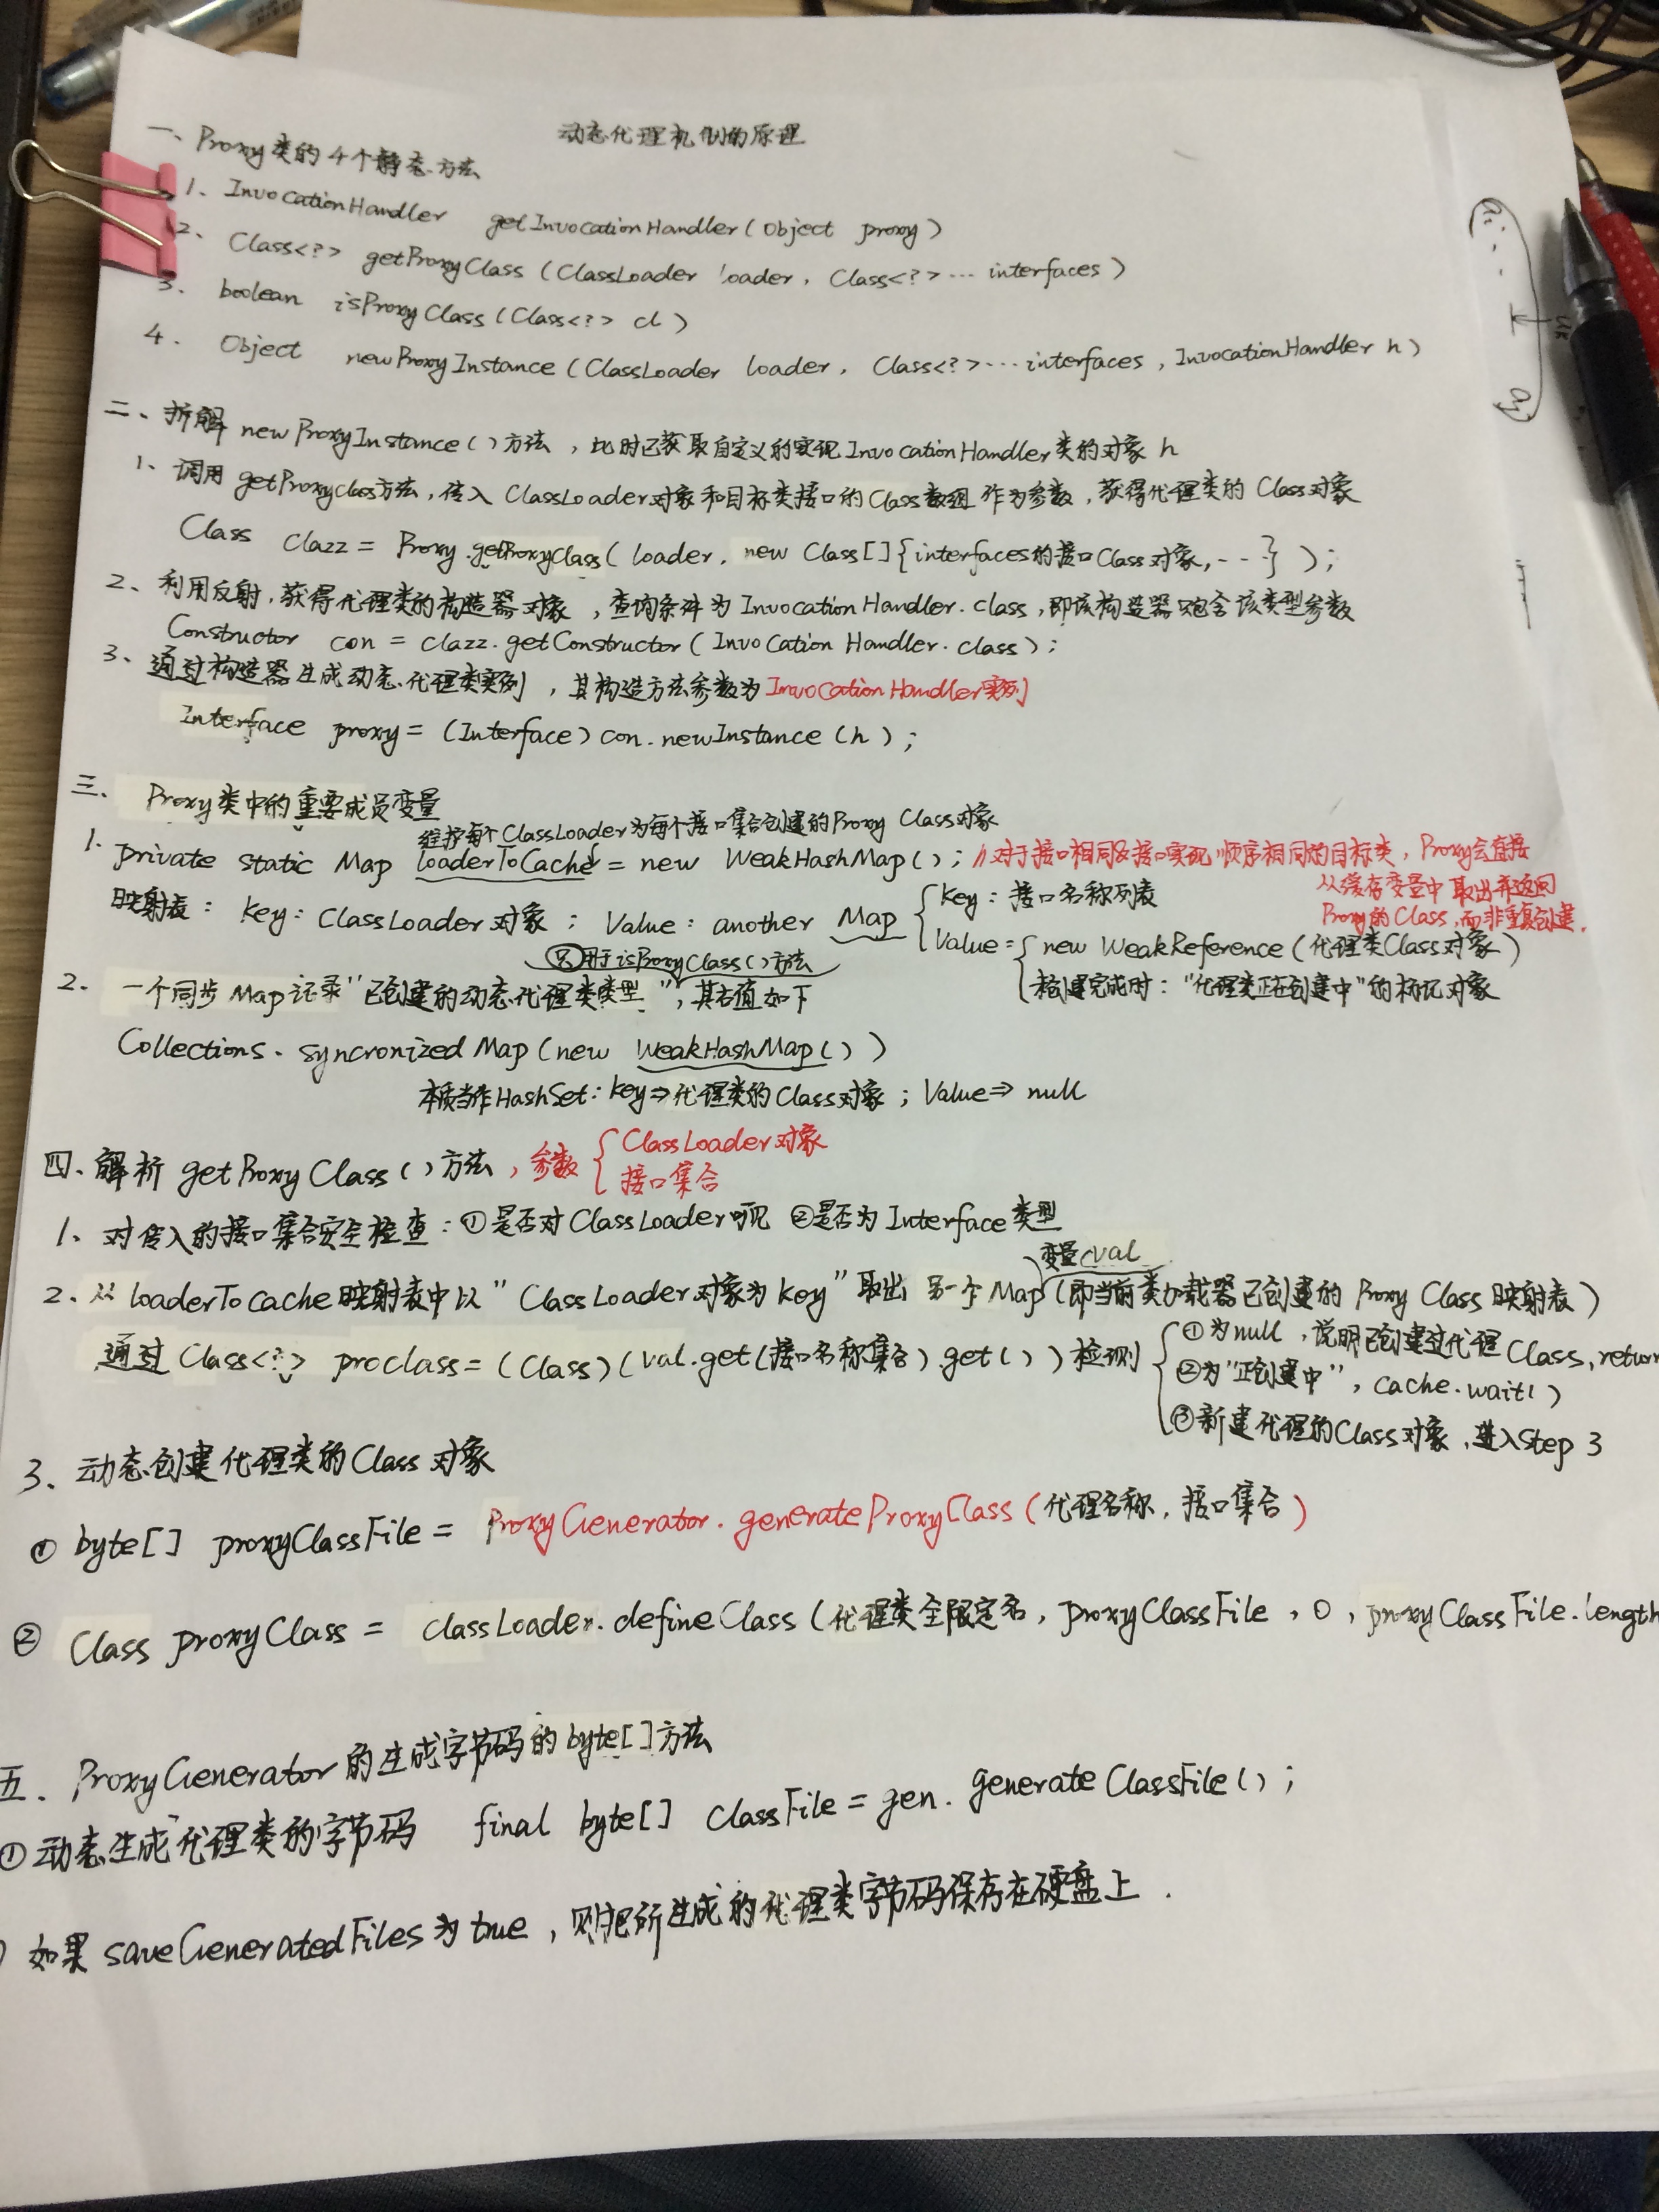 动态代理机制的原理
一、Proxy类的4个静态方法
1、InvocationHandler getInvocationHandler(Object proxy)
2、Class<?> getProxyClass(ClassLoader loader, Class<?>... interfaces)
3. boolean isProxyClass(Class<?> cl)
4. Object newProxyInstance(ClassLoader loader, Class<?>...interfaces, InvocationHandler h)
二、拆解 newProxyInstance()方法，此时已获取自定义的实现InvocationHandler类的对象 h
1、调用getProxyClass方法，传入 ClassLoader对象和目标类接口的Class数组作为参数，获得代理类的 Class对象
Class clazz = Proxy.getProxyClass(loader, new Class[]{interfaces的接口Class对象,...});
2、利用反射，获得代理类的构造器对象，查询条件为InvocationHandler.class，即该构造器只包含该类型参数
Constructor con = clazz.getConstructor(InvocationHandler.class);
3、通过构造器生成动态代理类实例，其构造方法参数为InvocationHandler实例
Interface proxy = (Interface) con.newInstance(h);
三、Proxy类中的重要成员变量
维护每个ClassLoader为每个接口集合创建的Proxy Class对象
1. private static Map loaderToCache = new WeakHashMap(); //对于接口相同及接口实现顺序相同的目标类，Proxy会直接
从缓存变量中取出并返回
Proxy的Class，而非重复创建.
映射表：key：ClassLoader对象；Value：another Map
key：接口名称列表
Value= new WeakReference(代理类Class对象)
创建完成时："代理类正在创建中"的标记对象
只用于isProxyClass()方法
2、一个同步Map记录"已创建的动态代理类类型"，其右值如下
Collections.syncronizedMap(new WeakHashMap())
本质当作HashSet：key⇒代理类的Class对象；Value⇒ null
四、解析 getProxyClass()方法，参数
ClassLoader对象
接口集合
1、对传入的接口集合安全检查：①是否对ClassLoader可见 ②是否为Interface类型
变量val
2、从loaderToCache映射表中以"ClassLoader对象为key"取出另一个Map(即当前类加载器已创建的 Proxy Class映射表)
通过 Class<?> proclass=(Class)(val.get(接口名称集合).get())检测
①为null，说明已创建过代理Class, return
②为"正创建中"，cache.wait()
③新建代理的Class对象，进入Step 3
3、动态创建代理类的Class对象
① byte[] proxyClassFile = ProxyGenerator.generateProxyClass(代理名称，接口集合)
② Class proxyClass = classLoader.defineClass(代理类全限定名，proxyClassFile，0，proxyClassFile.length
五. ProxyGenerator的生成字节码的byte[]方法
①动态生成代理类的字节码 final byte[] classFile = gen.generateClassFile();
如果saveGeneratedFiles为true，则把所生成的代理类字节码保存在硬盘上.